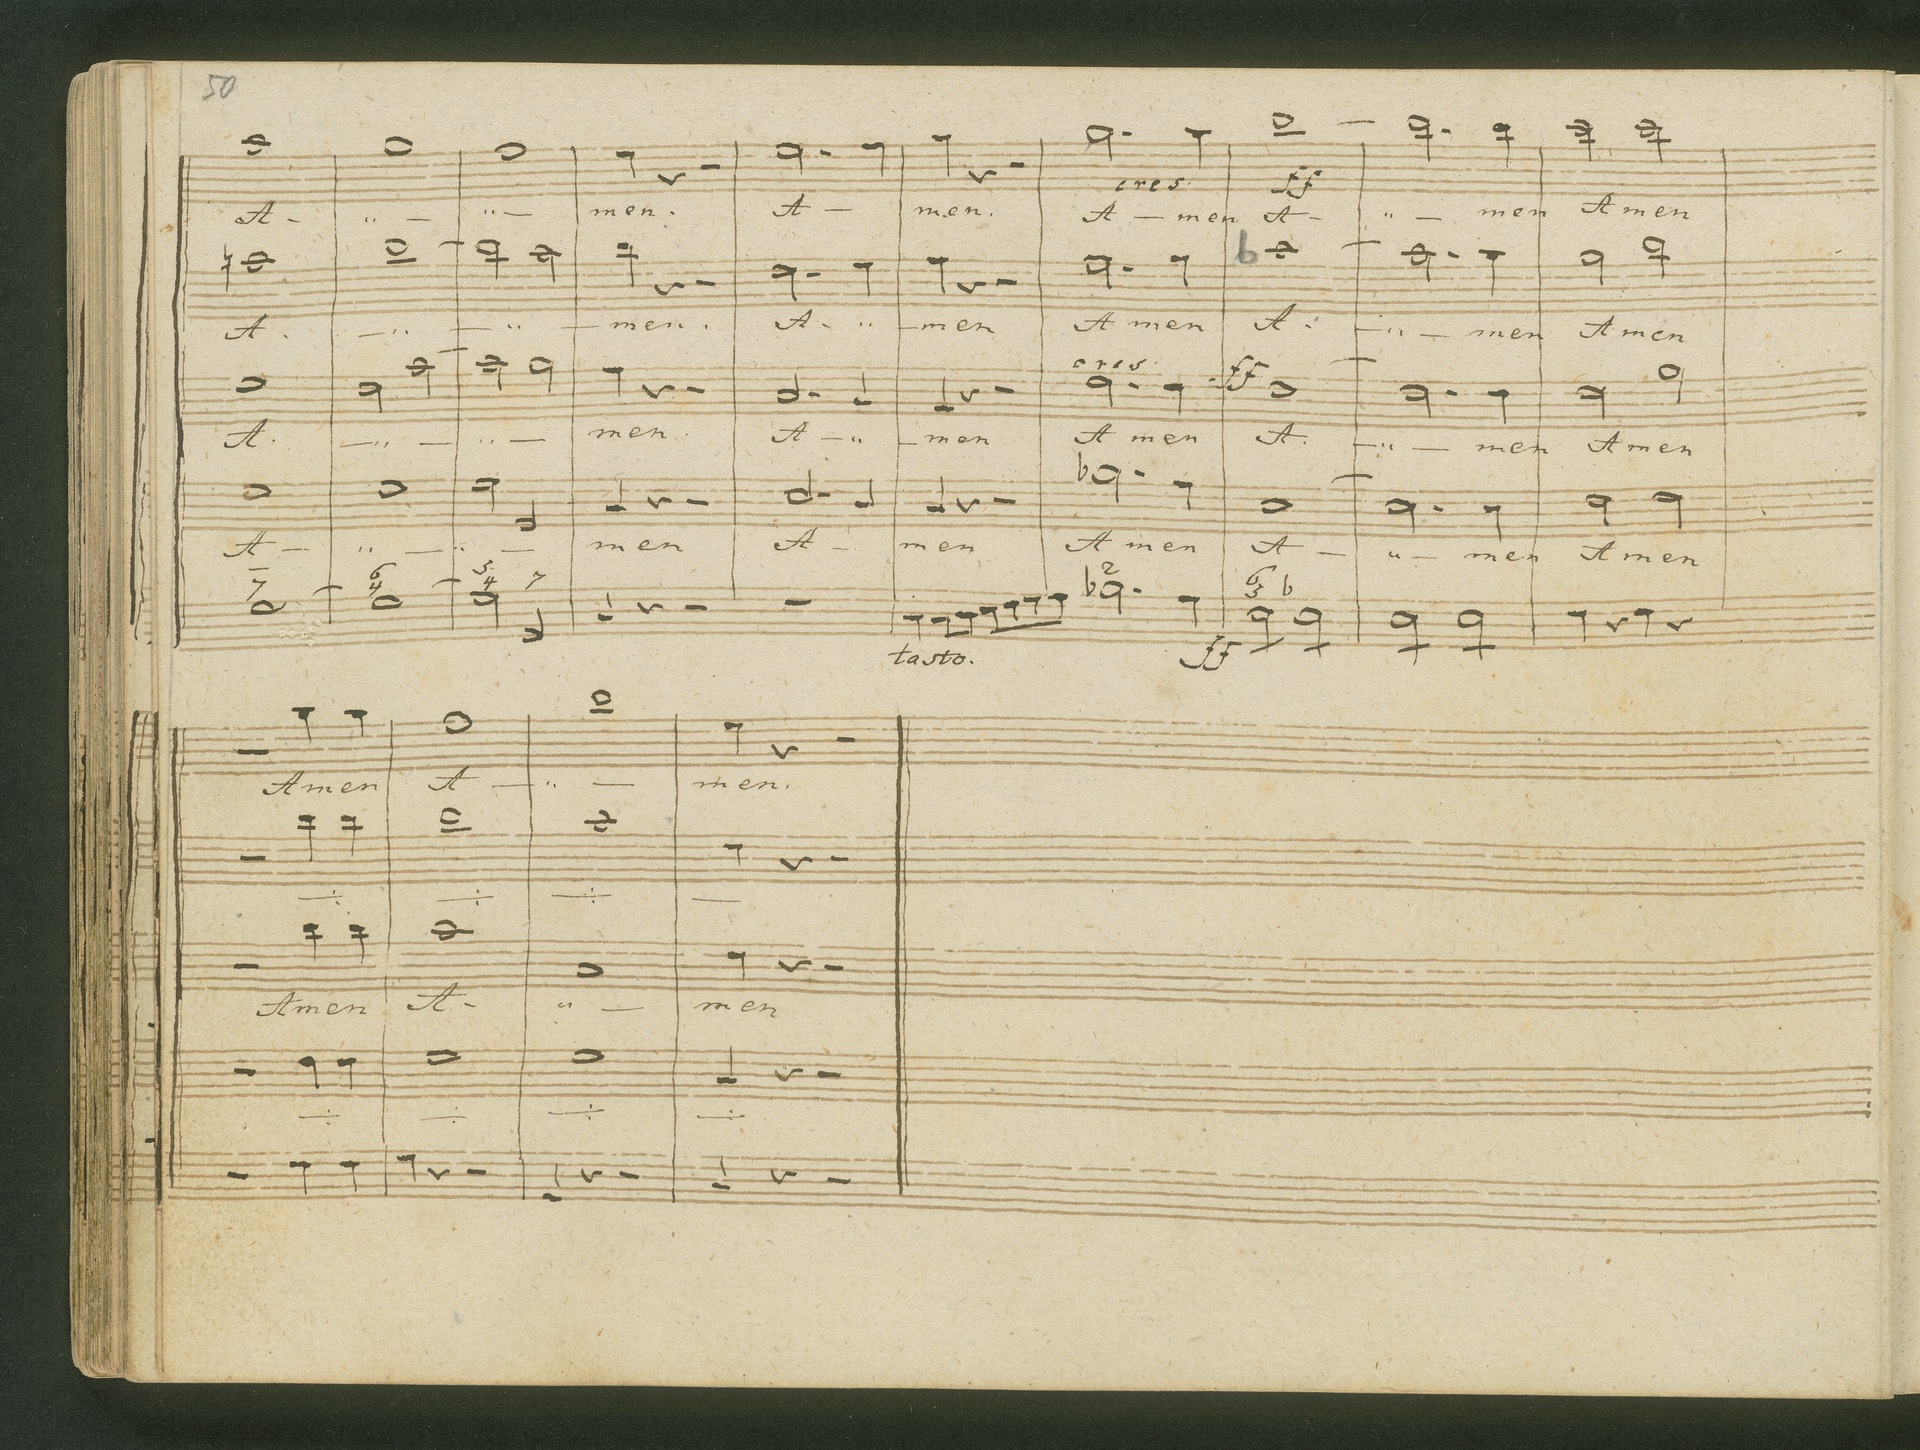 50
cres. ff
A - " - " - men. A - men. A - men A - " - men Amen
A. - " - " - men. A - " - men Amen A. - " - men Amen
cres. ff
A. - " - " - men. A - " - men Amen A. - " - men Amen
A - " - " - men A - men Amen A - " - men Amen
7 6 4 5 4 7 2 6 5 b
tasto. ff
Amen A - " - men.
Amen A - " - men